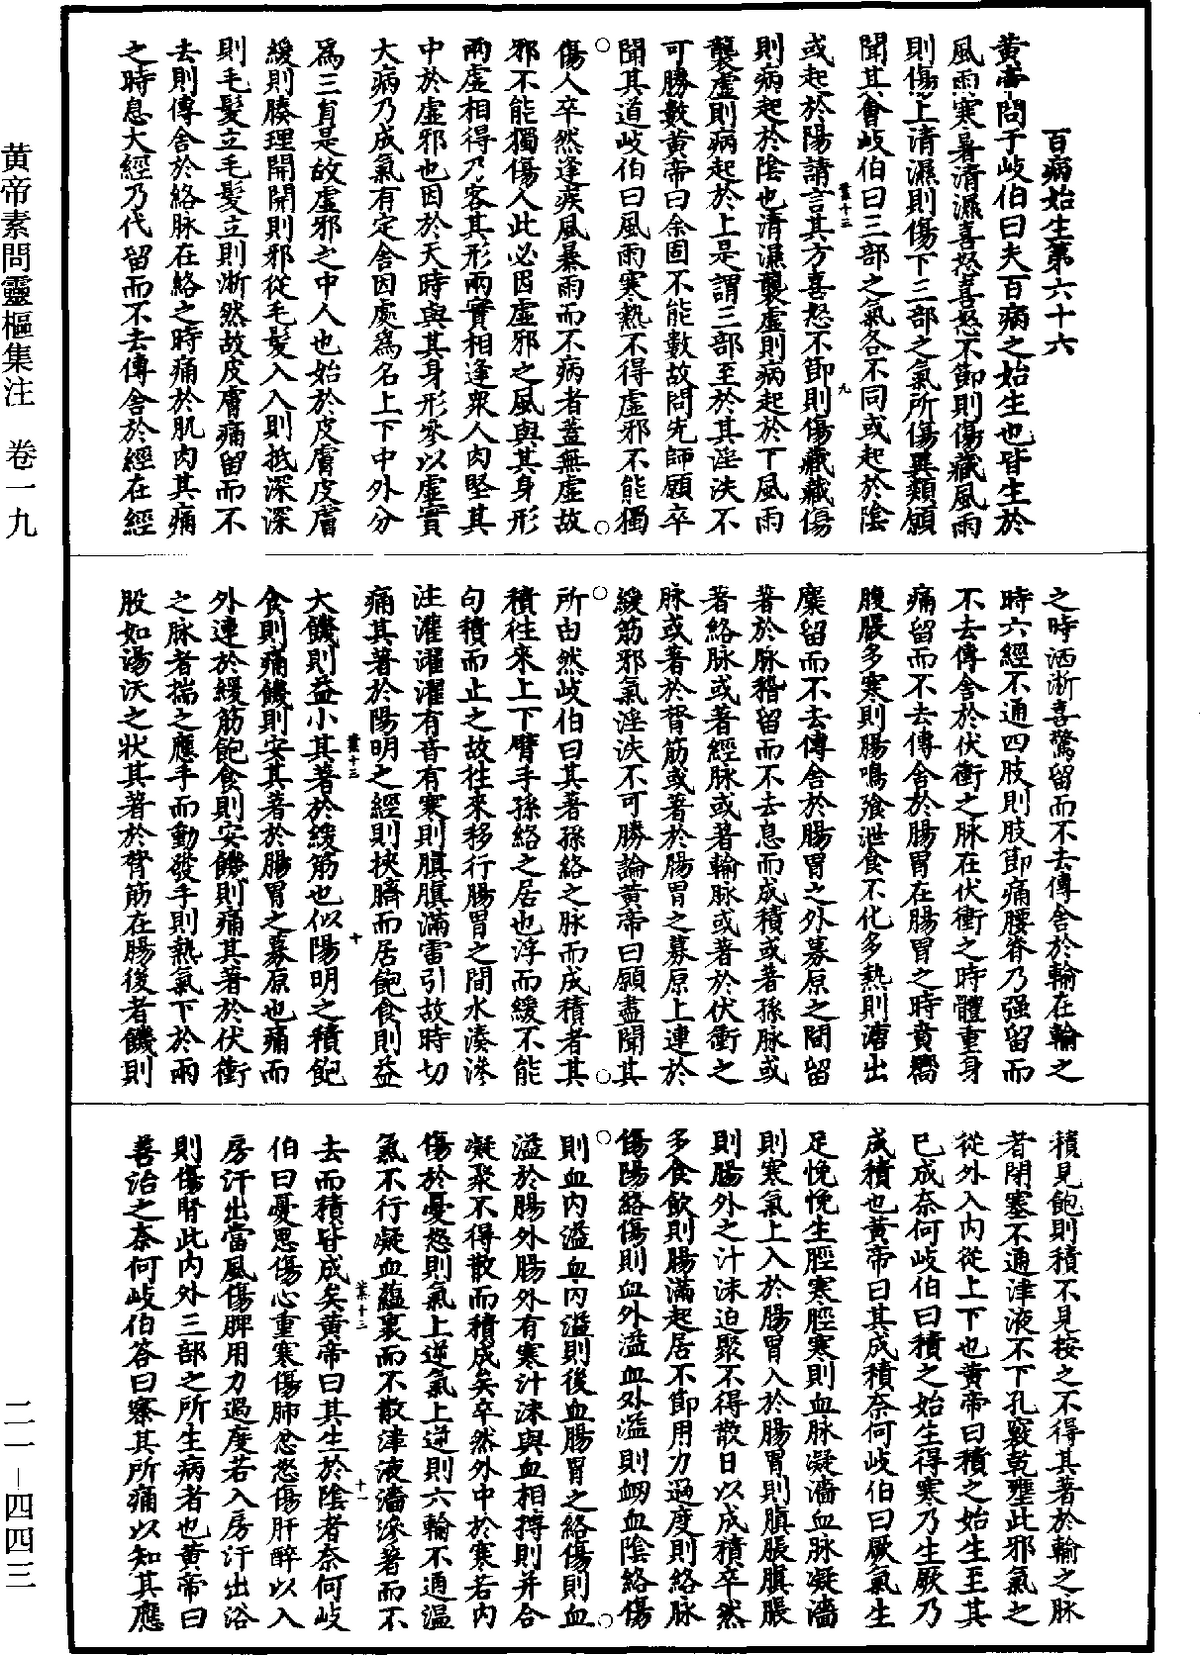 百病始生第六十六
黃帝問于岐伯曰夫百病之始生也皆生於
風雨寒暑清濕喜怒喜怒不節則傷藏風雨
則傷上清濕則傷下三部之氣所傷異類願
聞其會岐伯曰三部之氣各不同或起於陰
或起於陽請言其方喜怒不節則傷藏藏傷
則病起於陰也清濕襲虛則病起於下風雨
襲虛則病起於上是謂三部至於其淫泆不
可勝數黃帝曰余固不能數故問先師願卒
聞其道岐伯曰風雨寒熱不得虛邪不能獨
傷人卒然逢疾風暴雨而不病者蓋無虛故
邪不能獨傷人此必因虛邪之風與其身形
兩虛相得乃客其形兩實相逢衆人肉堅其
中於虛邪也因於天時與其身形參以虛實
大病乃成氣有定舍因處爲名上下中外分
爲三員是故虛邪之中人也始於皮膚皮膚
緩則腠理開開則邪從毛髮入入則抵深深
則毛髮立毛髮立則淅然故皮膚痛留而不
去則傳舍於絡脉在絡之時痛於肌肉其痛
之時息大經乃代留而不去傳舍於經在經
之時洒淅喜驚留而不去傳舍於輸在輸之
時六經不通四肢則肢節痛腰脊乃强留而
不去傳舍於伏衝之脉在伏衝之時體重身
痛留而不去傳舍於腸胃在腸胃之時賁嚮
腹脹多寒則腸鳴飧泄食不化多熱則溏出
麋留而不去傳舍於腸胃之外募原之間留
著於脉稽留而不去息而成積或著孫脉或
著絡脉或著經脉或著輸脉或著於伏衝之
脉或著於膂筋或著於腸胃之募原上連於
緩筋邪氣淫泆不可勝論黃帝曰願盡聞其
所由然岐伯曰其著孫絡之脉而成積者其
積往來上下臂手孫絡之居也浮而緩不能
句積而止之故往來移行腸胃之間水湊滲
注灌濯濯有音有寒則䐜䐜滿雷引故時切
痛其著於陽明之經則挾臍而居飽食則益
大饑則益小其著於緩筋也似陽明之積飽
食則痛饑則安其著於腸胃之募原也痛而
外連於緩筋飽食則安饑則痛其著於伏衝
之脉者揣之應手而動發手則熱氣下於兩
股如湯沃之狀其著於膂筋在腸後者饑則
積見飽則積不見按之不得其著於輸之脉
者閉塞不通津液不下孔竅乾壅此邪氣之
從外入内從上下也黃帝曰積之始生至其
已成奈何岐伯曰積之始生得寒乃生厥乃
成積也黃帝曰其成積奈何岐伯曰厥氣生
足悗悗生脛寒脛寒則血脉凝濇血脉凝濇
則寒氣上入於腸胃入於腸胃則䐜脹䐜脹
則腸外之汁沫迫聚不得散日以成積卒然
多食飲則腸滿起居不節用力過度則絡脉
傷陽絡傷則血外溢血外溢則衄血陰絡傷
則血内溢血内溢則後血腸胃之絡傷則血
溢於腸外腸外有寒汁沫與血相摶則并合
凝聚不得散而積成矣卒然外中於寒若内
傷於憂怒則氣上逆氣上逆則六輸不通溫
氣不行凝血蘊裏而不散津液濇滲著而不
去而積皆成矣黃帝曰其生於陰者奈何岐
伯曰憂思傷心重寒傷肺忿怒傷肝醉以入
房汗出當風傷脾用力過度若入房汗出浴
則傷腎此内外三部之所生病者也黃帝曰
善治之奈何岐伯答曰察其所痛以知其應
業十三
九
業十三
十
業十三
十一
黃帝素問靈樞集注 卷一九
二一－四四三